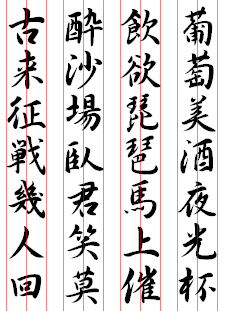 葡萄美酒夜光杯
飲欲琵琶馬上催
酔沙場臥君笑莫
古来征戦幾人回